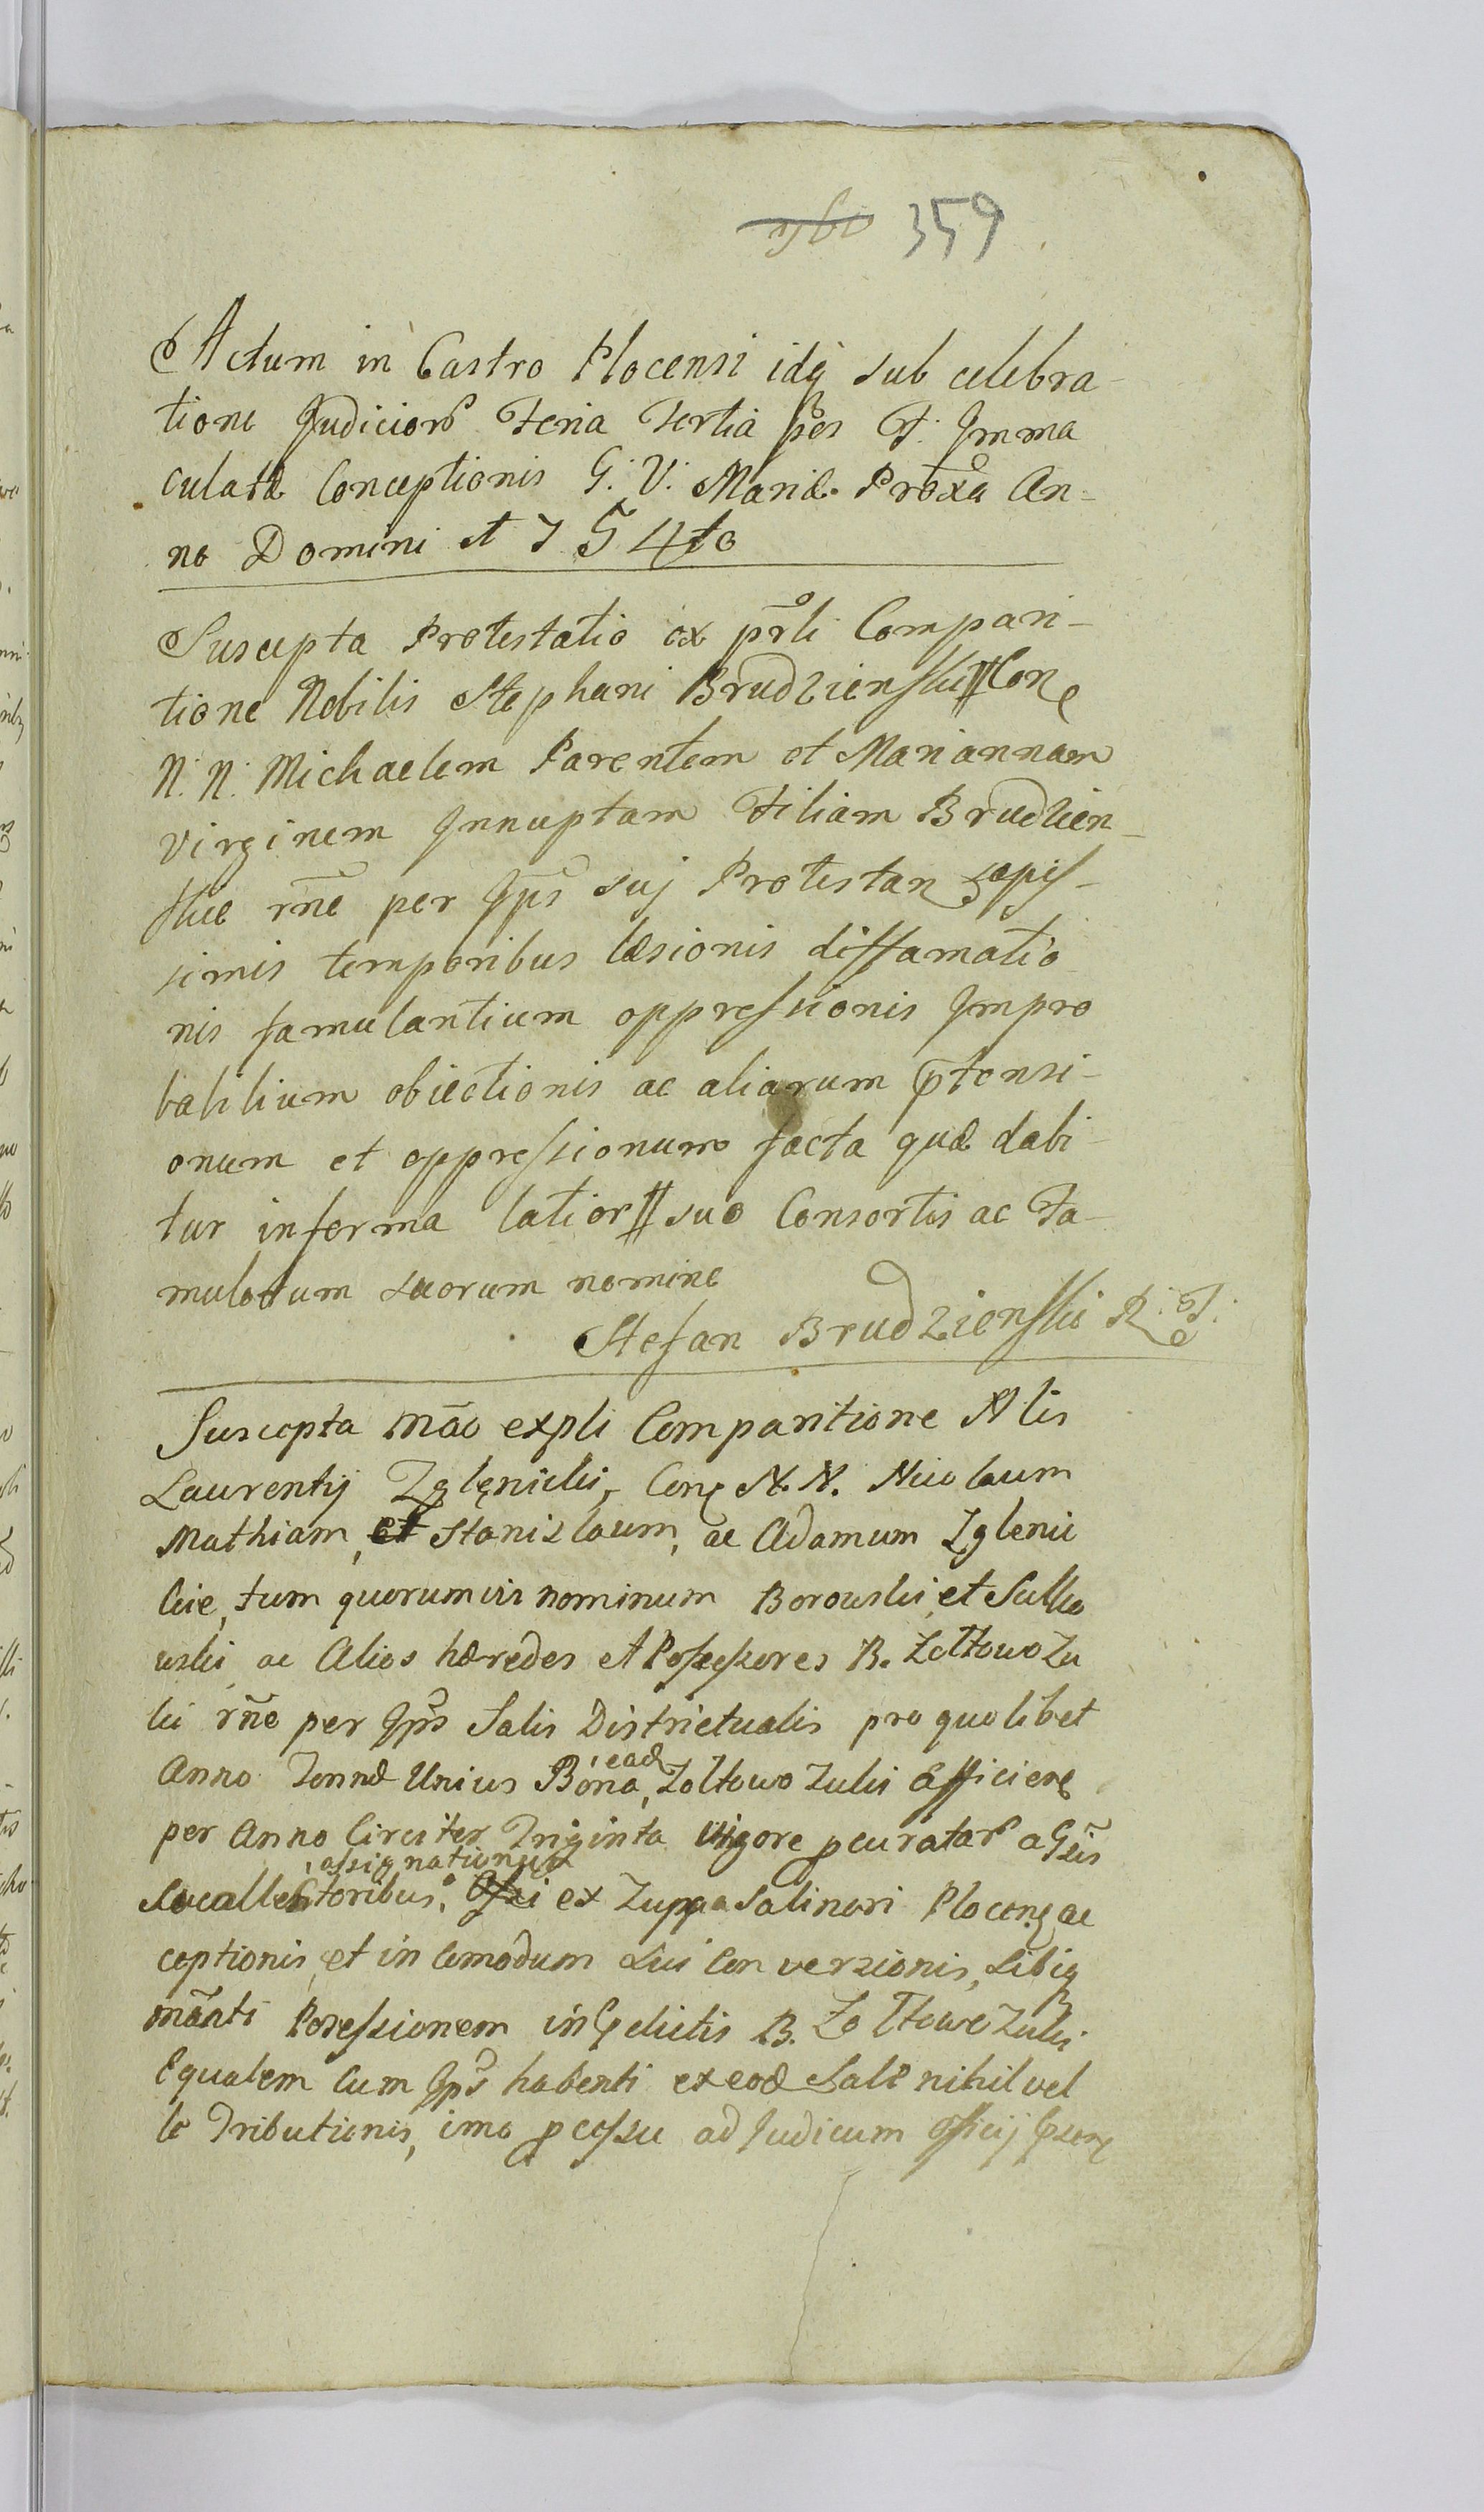 359
Actum in Castro Plocensi idq sub celebra-
tione Judicior Feria Tertia pos F. Imma
culatæ Conceptionis G. V. Mariæ Proxa An-
no Domini 1754to
Suscepta Protestatio ex prli Compari-
tione Nobilis Stephani Brudzienski Con
N. N. Michaelem Parentem et Mariannam
virginem Innuptam Filiam Brudzien-
skie rñe per Ips suj Protestan sæpis-
simis temporibus læsionis diffamatio
nis famulantium oppressionis Impro
babilium obiectionis ac aliarum p̄tensi-
onum et oppressionum facta quæ dabi-
tur in forma latior suo Consortis ac Fa-
mulorum suorum nomine
Stefan Brudzienski
Suscepta mão ex pli Comparitione Nlis
Laurentij Zglęnicki, Con N. N. Nicolaum
Mathiam, et Stanislaum, ac Adamum Zglenic
kie, tum quorumvis nominum Borowski, et Sulko
wski, ac Alios hæredes et Possessores B. Zołtowo Zu
lki rñe per Ips Salis Districtualis pro quolibet
Anno Tonnæ Unius Bona, ead Zołtowo Zulki Efficien
per Anno Circiter Triginta vigore pcurator a
Sucollectoribus, assignationis ex Zuppa Salinari Plocen ac
ceptionis, et in Comodum sui Conversionis, sibiq
mãnti Possessionem in B. Zołtowo Zulki
Equalem Cum Ips habenti ex eod Sale nihil vel
le Tributionis, imo pcessu ad Judicium officij